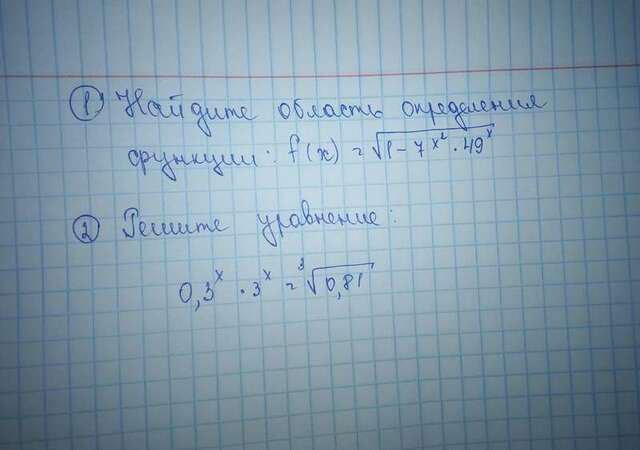 ① Найдите область определения
функции: f(x) = √(1 - 7^(x²) · 49^x)
② Решите уравнение:
0,3^x · 3^x = ³√(0,81)